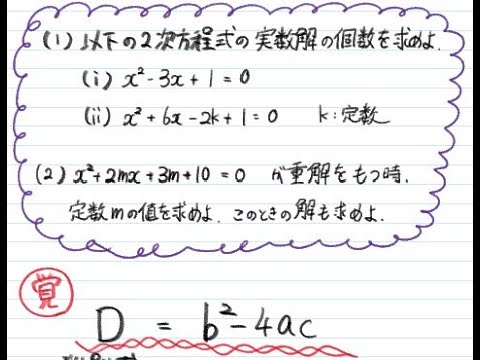 (1) 以下の2次方程式の実数解の個数を求めよ.
(i) x²-3x+1=0
(ii) x²+6x-2k+1=0 k:定数
(2) x²+2mx+3m+10=0 が重解をもつ時,
定数mの値を求めよ. このときの解も求めよ.
覚
D = b²-4ac